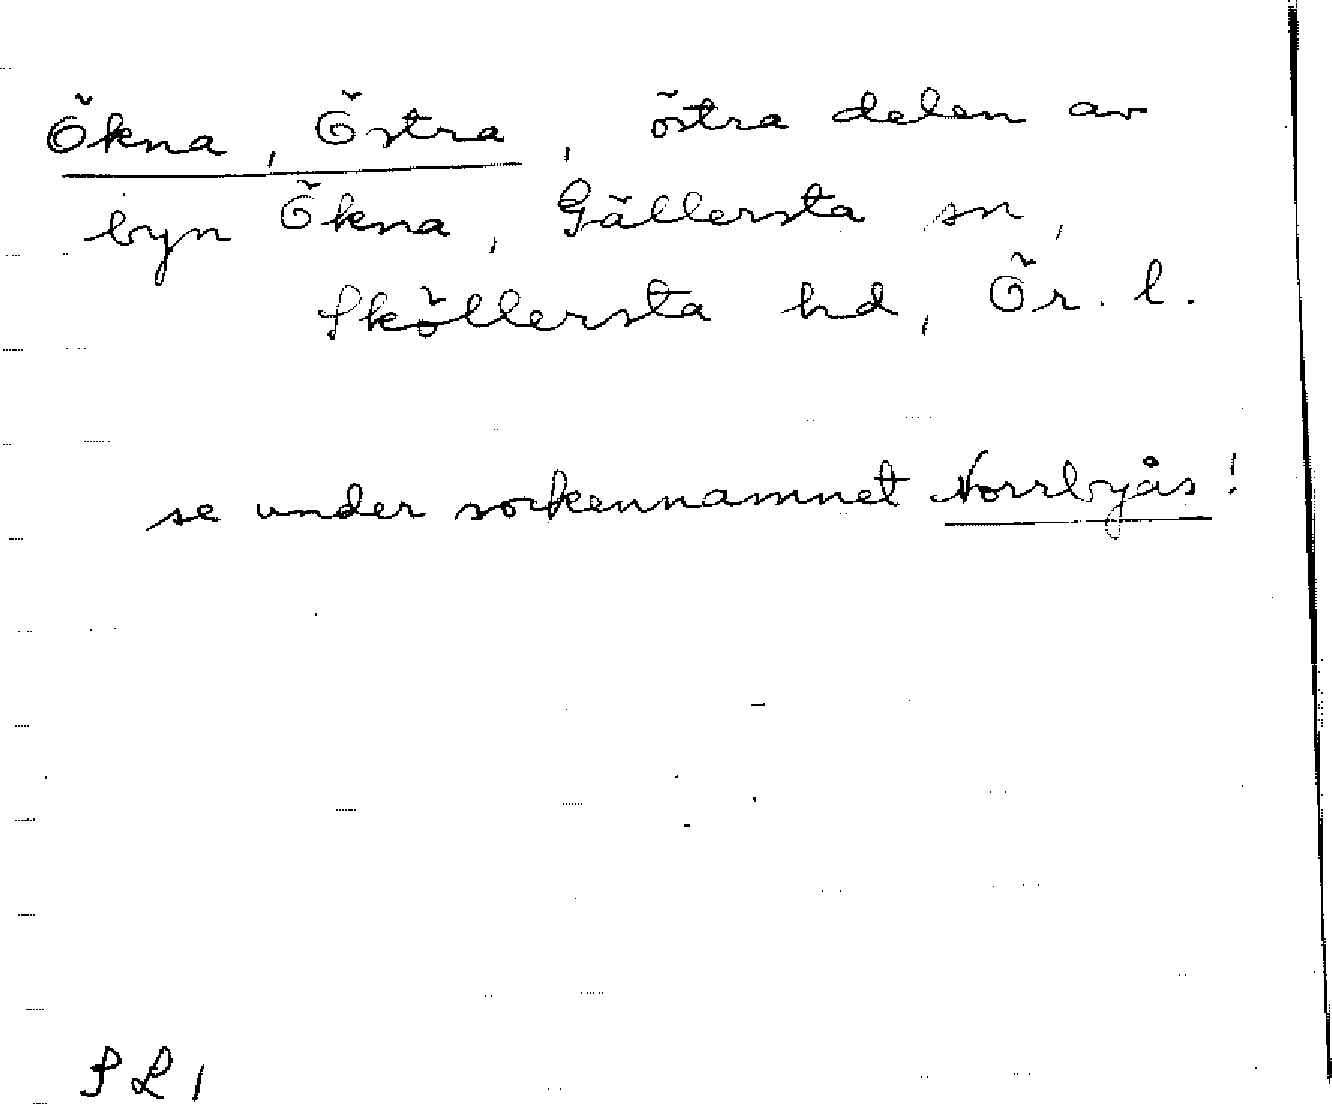 Ökna, Östra, östra delen av
byn Ökna, Gällersta sn,
Sköllersta hd, Ör. l.
se under sockennamnet Norrbyås!